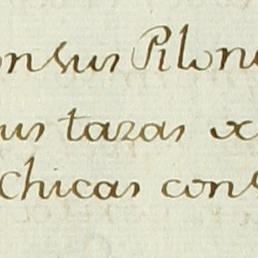 on sus Pilon
sus tazas x
chicas con